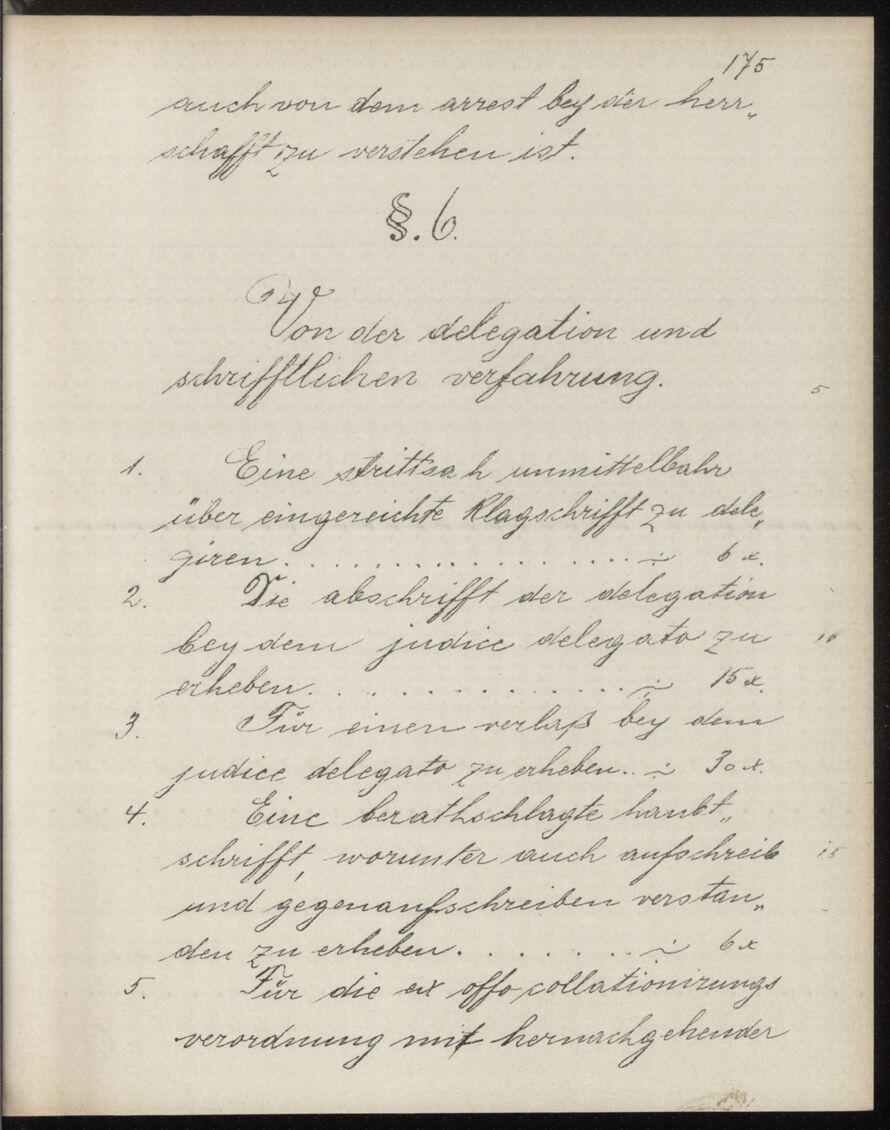 175
auch von dem arrest bey der herr„
schafft zu verstehen ist.
§. 6.
Von der delegation und
schrifftlichen verfahrung.
5
1. Eine strittsach unmittelbahr
über eingereichte Klagschrifft zu dele„
giren . . . . . . . . . . . . . . . . . ÷ 6 x.
2. Die abschrifft der delegation
bey dem judice delegato zu
10
erheben. . . . . . . . . . . . . . ÷ 15 x.
3. Für einen verlaß bey dem
judice delegato zu erheben. . ÷ 30 x.
4. Eine berathschlagte haubt„
schrifft, worunter auch aufschreib
15
und gegenaufschreiben verstan„
den zu erheben. . . . . . . . ÷ 6 x
5. Für die ex offo collationirungs
verordnung mit hernachgehender